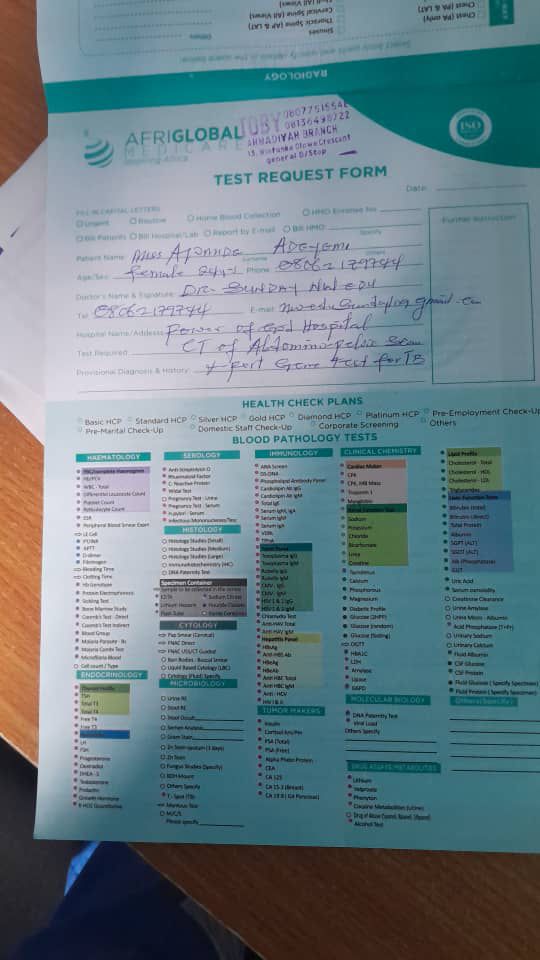 RADIOLOGY
Chest (PA only)
Chest (PA & LAT)
Cervical Spine (All Views)
Thoracic Spine (AP & LAT)
Sinuses
Others
AFRIGLOBAL
MEDICARE
AHMADIYAH BRANCH
general B/Stop
ISO
TEST REQUEST FORM
Date:
FILL IN CAPITAL LETTERS
Urgent Routine Home Blood Collection HMO Enrollee No
Bill Patients Bill Hospital/Lab Report by E-mail Bill HMO
Specify
Further Instruction
Patient Name: Miss AJOANDE ADEYEMI
Surname Others
Age/Sex: Female Phone 08062179744
Doctor's Name & Signature: DR. SUNDAY NWEDU
Tel: 08062179744 E-mail:
Hospital Name/Address: Power of God Hospital
Test Required: CT of Abdomino-pelvic Scan
Provisional Diagnosis & History: for TB
HEALTH CHECK PLANS
Basic HCP Standard HCP Silver HCP Gold HCP Diamond HCP Platinum HCP Pre-Employment Check-Up
Pre-Marital Check-Up Domestic Staff Check-Up Corporate Screening Others
BLOOD PATHOLOGY TESTS
HAEMATOLOGY
FBC/complete Haemogram
Hb/PCV
WBC - Total
Differential Leucocyte Count
Platelet Count
Reticulocyte Count
ESR
Peripheral Blood Smear Exam
LE Cell
PT/INR
APTT
D-dimer
Fibrinogen
Bleeding Time
Clotting Time
Hb Genotype
Protein Electrophoresis
Sickling Test
Bone Marrow Study
Coomb's Test - Direct
Coomb's Test Indirect
Blood Group
Malaria Parasite - Bs
Malaria Combi Test
Microfilaria Blood
Cell count / Type
ENDOCRINOLOGY
TSH
Total T3
Total T4
Free T4
Free T3
LH
FSH
Progesterone
Oestradiol
DHEA - S
Testosterone
Prolactin
Growth Hormone
B HCG Quantitative
SEROLOGY
Anti-Streptolysin O
Rheumatoid Factor
C- Reactive Protein
Widal Test
Pregnancy Test - Urine
Pregnancy Test - Serum
H.pylori - Serum
Infectious Mononucleosis Test
HISTOLOGY
Histology Studies (Small)
Histology Studies (Medium)
Histology Studies (Large)
Immunohistochemistry (IHC)
DNA-Paternity Test
Specimen Container
EDTA Sodium Citrate
Lithium Heparin Fluoride Oxalate
Plain Tube
CYTOLOGY
Pap Smear (Cervical)
FNAC Direct
FNAC US/CT Guided
Barr Bodies - Buccal Smear
Liquid Based Cytology (LBC)
Cytology (Fluid) Specify
MICROBIOLOGY
Urine RE
Stool RE
Stool Occult
Semen Analysis
Gram Stain
Zn Stain sputum (3 days)
Zn Stain
Fungus Studies (Specify)
KOH Mount
Others Specify
T - Spot (TB)
Mantoux Test
M/C/S
Please specify
IMMUNOLOGY
ANA Screen
DS-DNA
Phospholipid Antibody Panel
Cardiolipin Ab IgG
Cardiolipin Ab IgM
Total IgE
Serum IgM
Serum IgA
VDRL
TPHA
Toxoplasma IgG
Toxoplasma IgM
Rubella IgG
Rubella IgM
CMV - IgG
CMV - IgM
HSV 1 & 2 IgG
HSV 1 & 2 IgM
Chlamydia Test
Anti-HAV Total
Anti-HAV IgM
Hepatitis Panel
HBsAg
Anti-HBS Ab
HBeAg
HBeAb
Anti HBC Total
Anti HBC IgM
Anti - HCV
HIV I & II
TUMOR MAKERS
Insulin
Cortisol Am/Pm
PSA (Total)
PSA (Free)
Alpha Photo Protein
CEA
CA 125
CA 15-3 (Breast)
CA 19-9 ( GI Pancreas)
CLINICAL CHEMISTRY
Cardiac Maker
CPK
CPK, MB Mass
Troponin I
Myoglobin
Sodium
Potassium
Chloride
Bicarbonate
Urea
Creatine
Calcium
Phosphorous
Magnesium
Diabetic Profile
Glucose (2HPP)
Glucose (random)
Glucose (fasting)
OGTT
HBA1C
LDH
Amylase
Lipase
G6PD
MOLECULAR BIOLOGY
DNA Paternity Test
Viral Load
Others Specify
DRUG ASSAYS/METABOLITES
Lithium
Valproate
Phenytoin
Cocaine Metabolites (Urine)
Alcohol Test
Lipid Profile
Cholesterol - Total
Cholesterol - HDL
Cholesterol - LDL
Triglycerides
Liver Function Tests
Bilirubin (total)
Bilirubin (direct)
Total Protein
Albumin
SGPT (ALT)
SGOT (AST)
Alk (Phosphatase)
GGT
Uric Acid
Serum osmolality
Creatinine Clearance
Urine Amylase
Urine Micro - Albumin
Acid Phosphatase (T+Pr)
Urinary Sodium
Urinary Calcium
Fluid Albumin
CSF Glucose
CSF Protein
Fluid Glucose ( Specify Specimen)
Fluid Protein ( Specify Specimen)
Others(Specify)